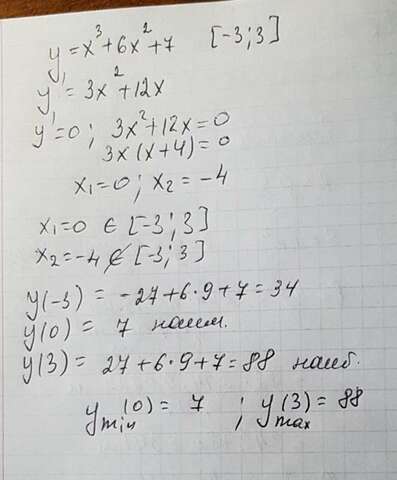 y = x³ + 6x² + 7 [-3; 3]
y' = 3x² + 12x
y' = 0; 3x² + 12x = 0
3x(x + 4) = 0
x₁ = 0; x₂ = -4
x₁ = 0 ∈ [-3; 3]
x₂ = -4 ∉ [-3; 3]
y(-3) = -27 + 6·9 + 7 = 34
y(0) = 7 наим.
y(3) = 27 + 6·9 + 7 = 88 наиб.
y min (0) = 7 ; y max (3) = 88